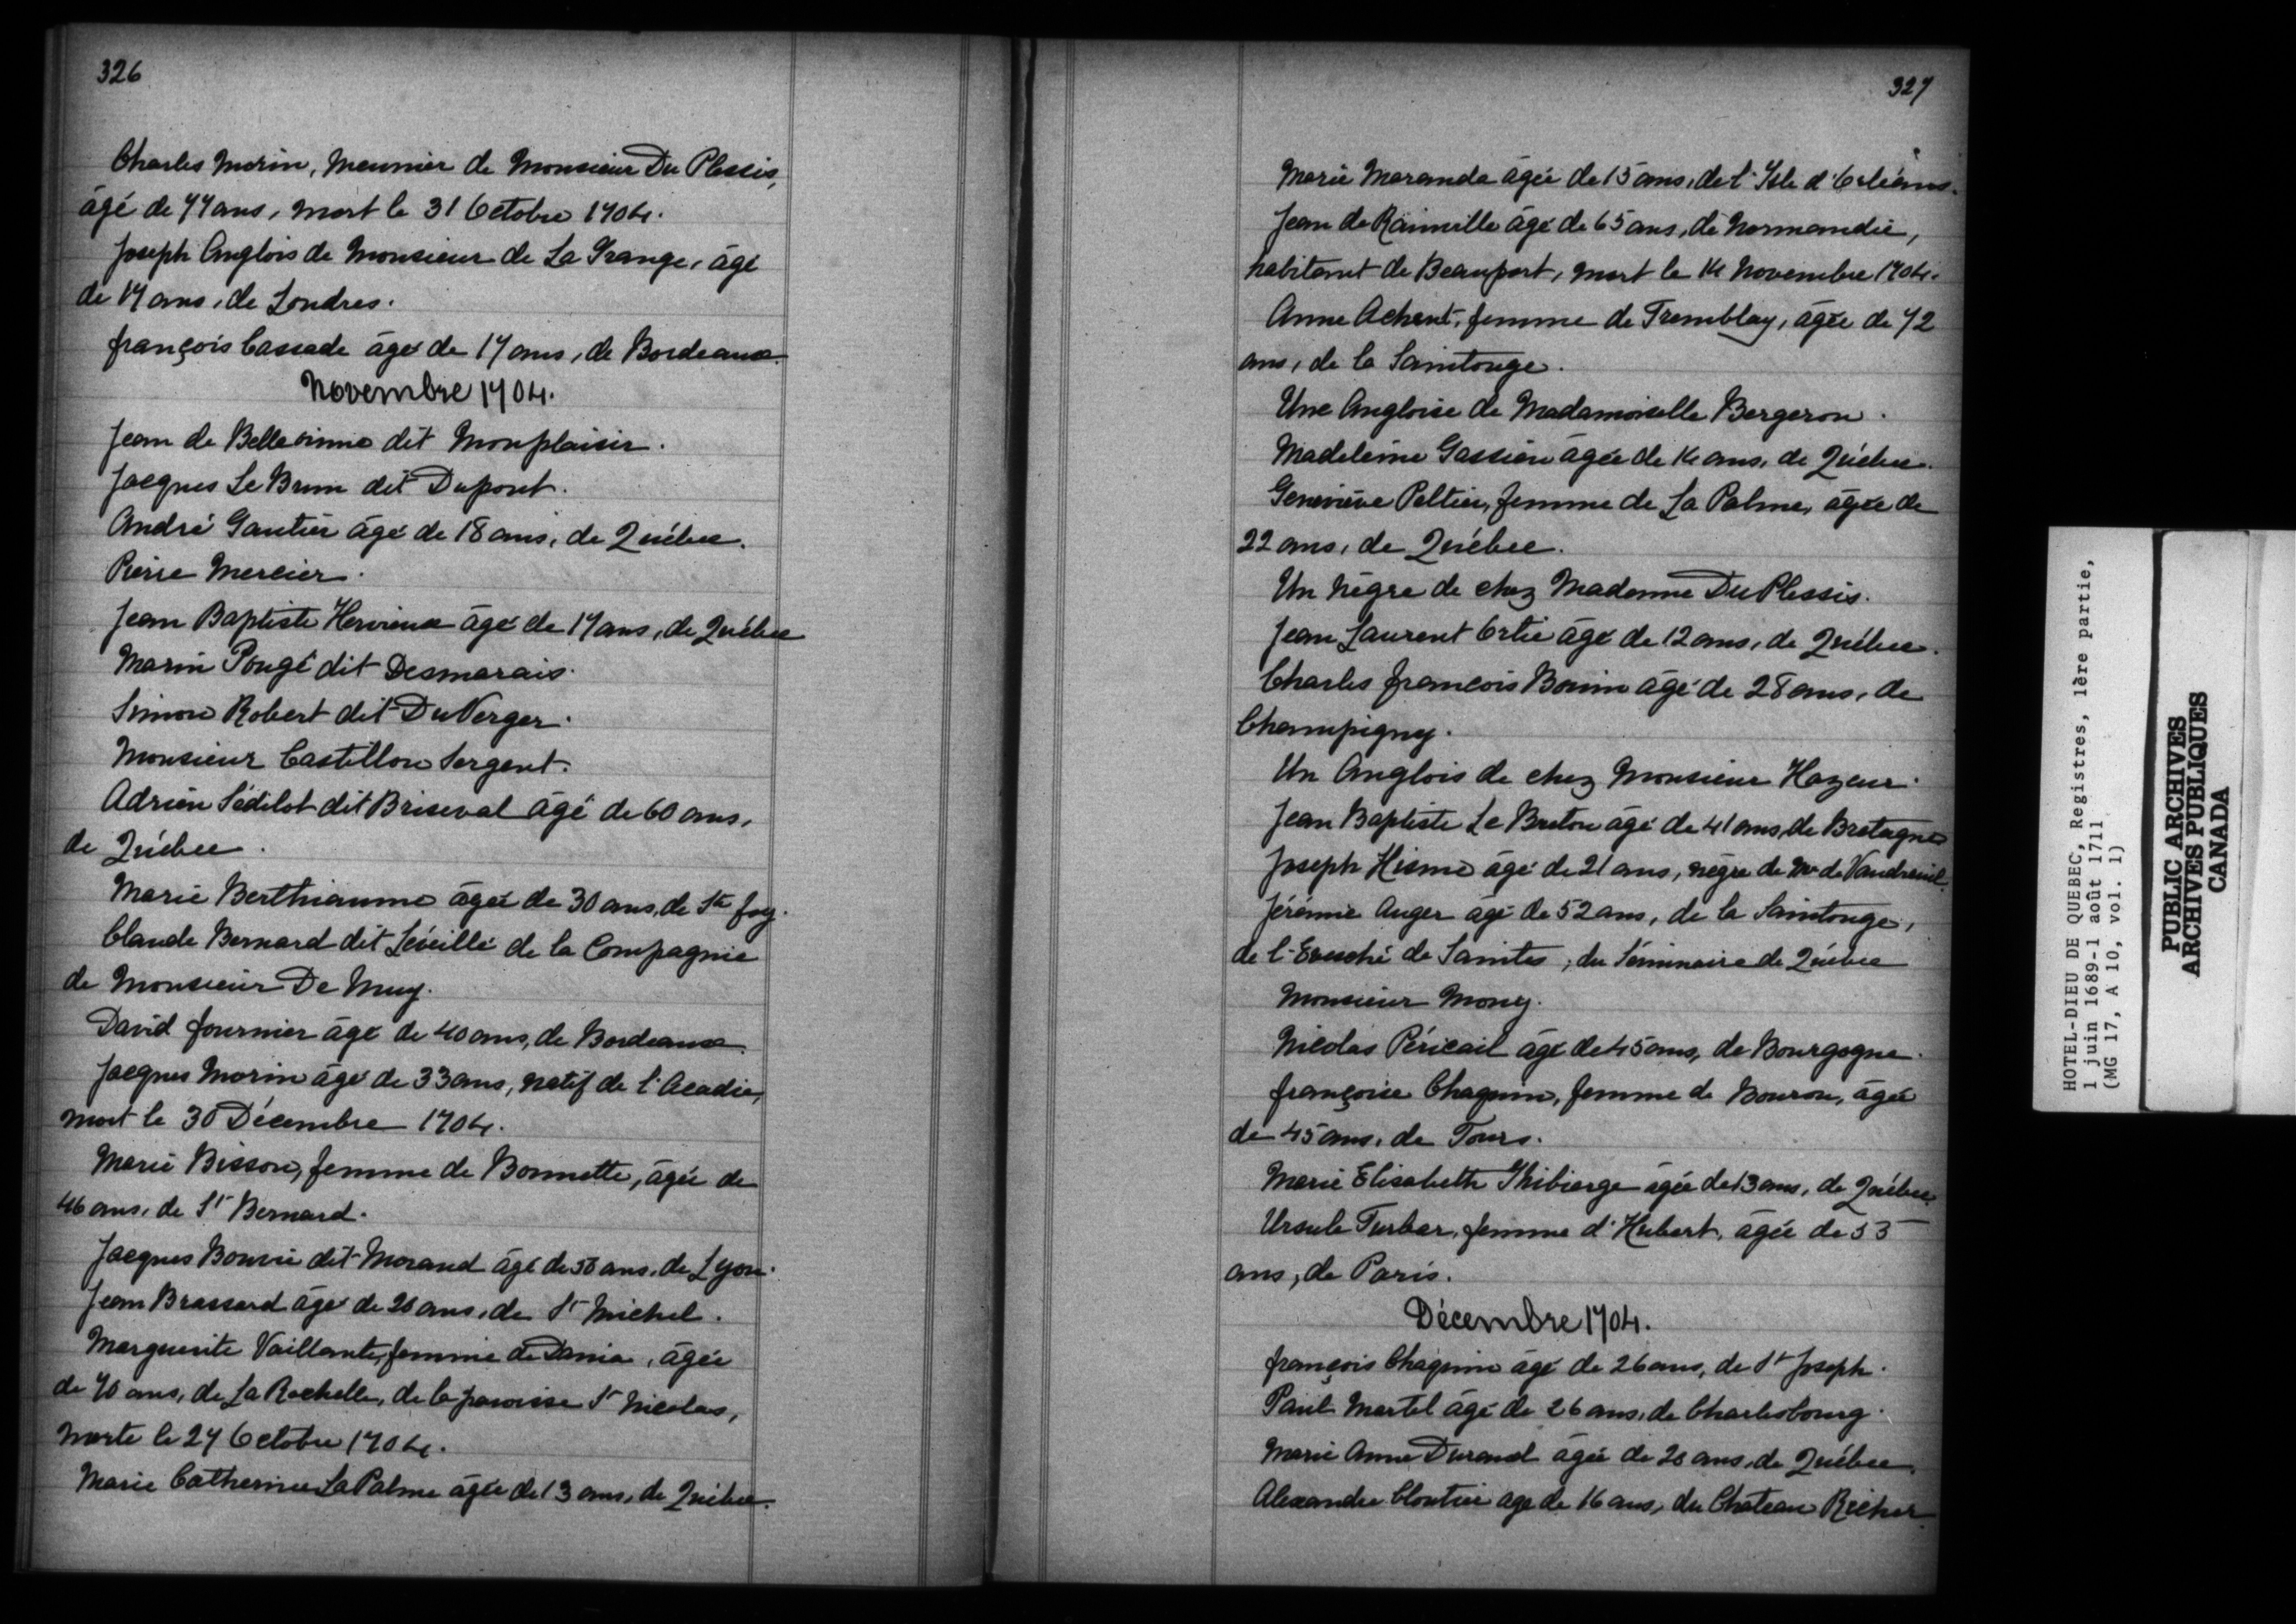 326
Charles Morin, Meunier de Monsieur Du Plessis,
âgé de 77 ans, mort le 31 Octobre 1704.
Joseph Anglois de Monsieur de La Grange, âgé
de 17 ans, de Londres.
françois Cascade âgé de 17 ans, de Bordeaux.
Novembre 1704.
Jean de Bellesinne dit Monplaisir.
Jacques Le Brun dit Dupont.
André Gautier âgé de 18 ans, de Québec.
Pierre Mercier.
Jean Baptiste Hervieux âgé de 17 ans, de Québec
Marin Pougé dit Desmarais.
Simon Robert dit Du Verger.
Monsieur Castillon Sergent.
Adrien Sédilot dit Briseval âgé de 60 ans,
de Québec.
Marie Berthiaume âgée de 30 ans, de Ste foy.
Claude Bernard dit Léveillé de la Compagnie
de Monsieur De Muy.
David fournier âgé de 40 ans, de Bordeaux.
Jacques Morin âgé de 33 ans, natif de l'Acadie,
mort le 30 Décembre 1704.
Marie Bisson, femme de Bonnette, âgée de
46 ans, de St Bernard.
Jacques Bouvié dit Morand âgé de 58 ans, de Lyon.
Jean Brassard âgé de 26 ans, de St Michel.
Marguerite Vaillante, femme de Dania, âgée
de 70 ans, de La Rochelle, de la paroisse St Nicolas,
morte le 27 Octobre 1704.
Marie Catherine La Palme âgée de 13 ans, de Québec.
327
Marie Maranda âgée de 15 ans, de l'Isle d'Orléans.
Jean de Rainville âgé de 65 ans, de Normandie,
habitant de Beauport, mort le 14 Novembre 1704.
Anne Achent, femme de Tremblay, âgée de 72
ans, de la Saintonge.
Une Angloise de Madamoiselle Bergeron.
Madeleine Gassien âgée de 14 ans, de Québec.
Geneviève Peltier, femme de La Palme, âgée de
22 ans, de Québec.
Un Nègre de chez Madame Du Plessis.
Jean Laurent Ortie âgé de 12 ans, de Québec.
Charles françois Bonin âgé de 28 ans, de
Champigny.
Un Anglois de chez Monsieur Hazeur.
Jean Baptiste Le Breton âgé de 41 ans, de Bretagne
Joseph Hisme âgé de 21 ans, nègre de Mr de Vaudreuil.
Jérémie Auger âgé de 52 ans, de la Saintonge,
de l'Evesché de Saintes, du Séminaire de Québec
Monsieur Mony.
Nicolas Péricail âgé de 45 ans, de Bourgogne.
françoise Chaquin, femme de Bouron, âgée
de 45 ans, de Tours.
Marie Elisabeth Thibierge âgée de 13 ans, de Québec.
Ursule Turbar, femme d'Hubert, âgée de 55
ans, de Paris.
Décembre 1704.
françois Chaquin âgé de 26 ans, de St Joseph.
Paul Martel âgé de 26 ans, de Charlesbourg.
Marie Anne Durand âgée de 20 ans, de Québec.
Alexandre Cloutier age de 16 ans, du Chateau Richer
HOTEL-DIEU DE QUEBEC, Registres, 1ère partie,
1 juin 1689-1 août 1711
(MG 17, A 10, vol. 1)
PUBLIC ARCHIVES
ARCHIVES PUBLIQUES
CANADA